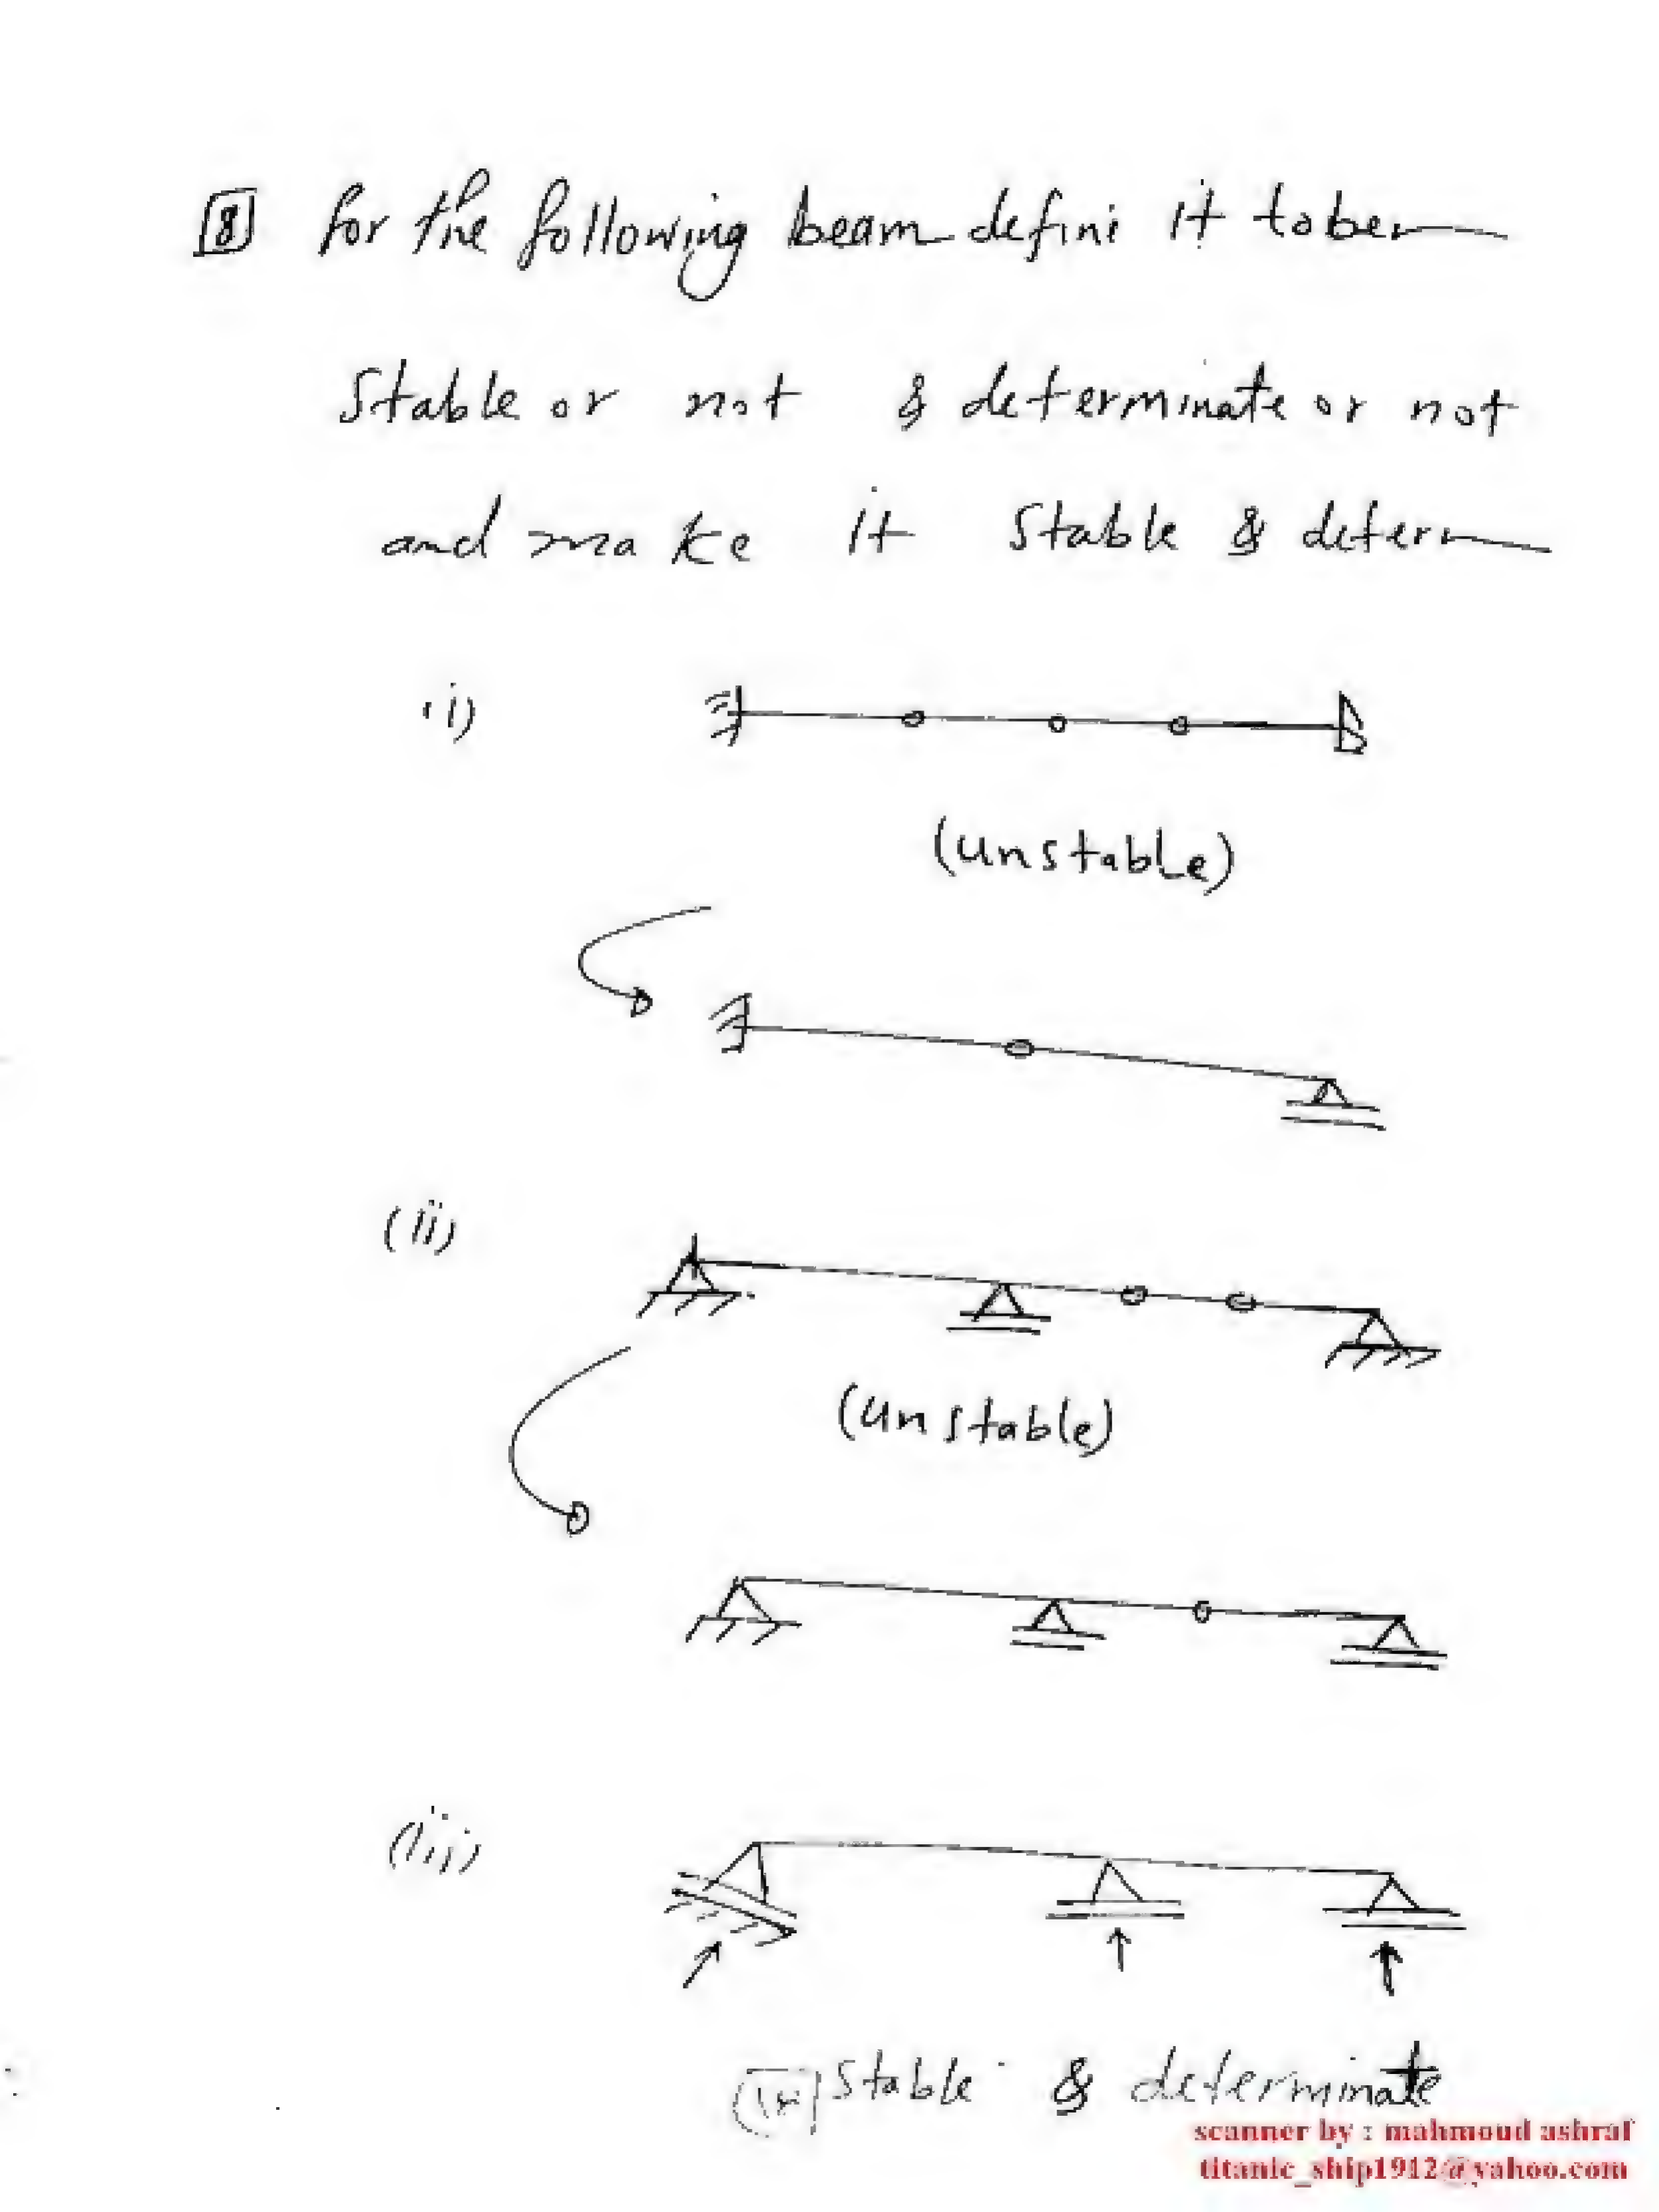 8 for the following beam define it to be
stable or not & determinate or not
and make it stable & determ
(i)
(unstable)
(ii)
(unstable)
(iii)
stable & determinate
scanner by : mahmoud ashraf
titanic_ship1912@yahoo.com